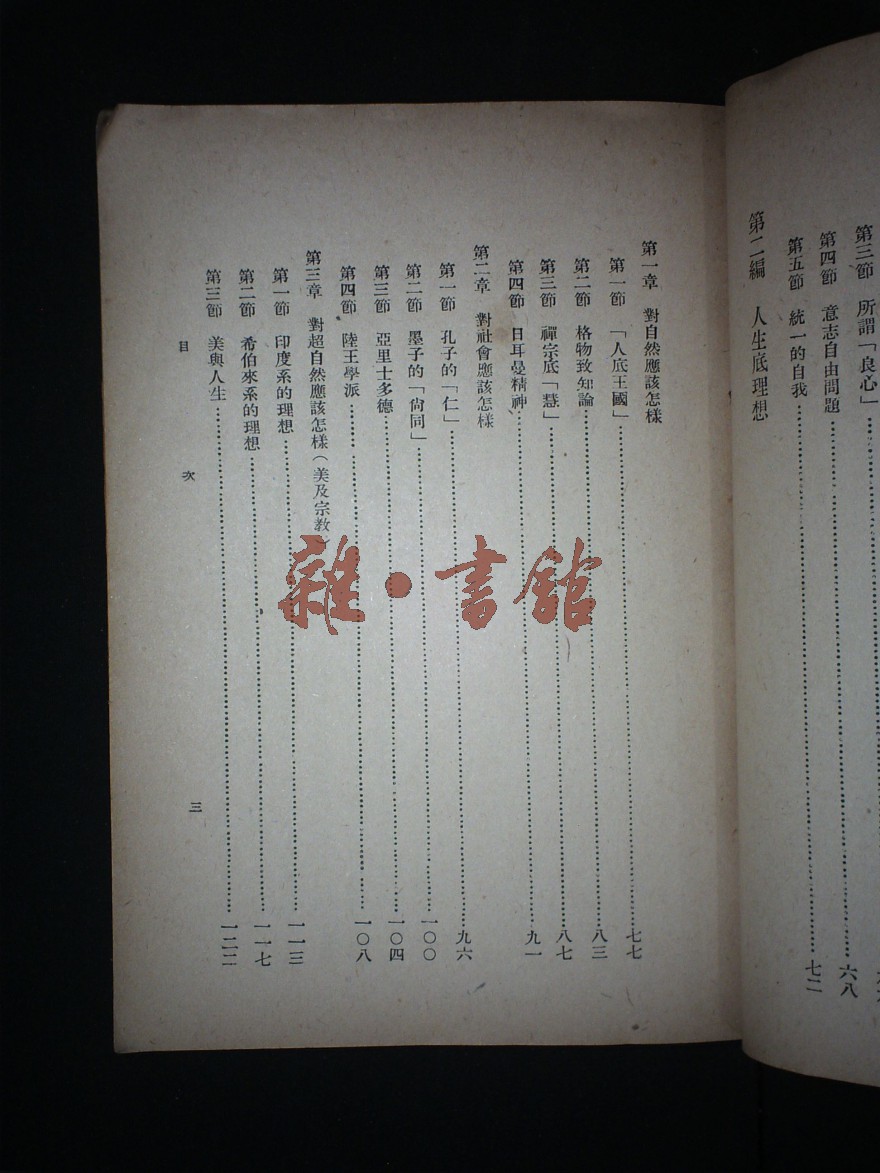 第三節 所謂「良心」
第四節 意志自由問題……六八
第五節 統一的自我……七二
第二編 人生底理想
第一章 對自然應該怎樣
第一節 「人底王國」……七七
第二節 格物致知論……八三
第三節 禪宗底「慧」……八七
第四節 日耳曼精神……九一
第二章 對社會應該怎樣
第一節 孔子的「仁」……九六
第二節 墨子的「尙同」……一〇〇
第三節 亞里士多德……一〇四
第四節 陸王學派……一〇八
第三章 對超自然應該怎樣(美及宗教)
第一節 印度系的理想……一一三
第二節 希伯來系的理想……一一七
第三節 美與人生……一二二
目次 三
雜·書館